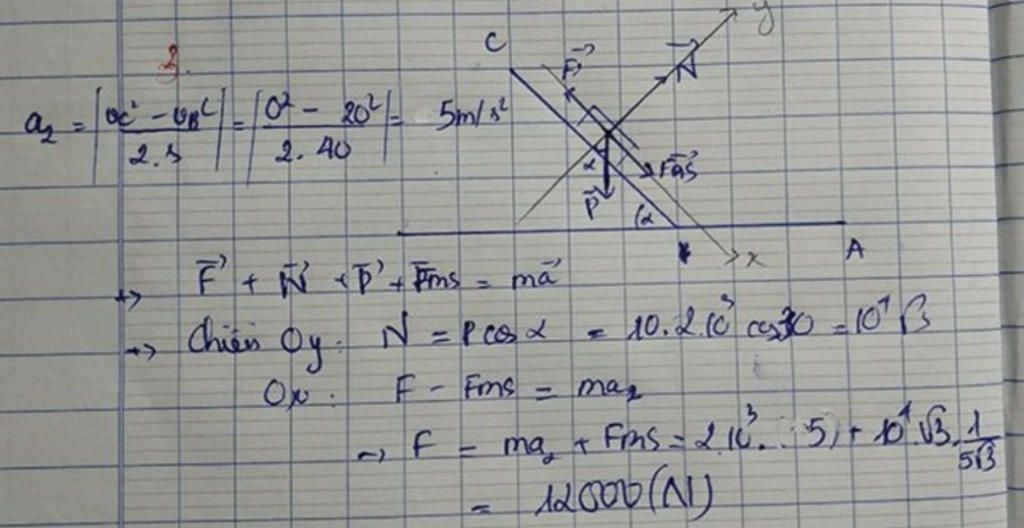 3.
a₂ = |(v_C² - v_B²)/(2.s)| = |(0² - 20²)/(2.40)| = 5m/s²
C
F⃗
N⃗
y
α
F⃗ms
P⃗
α
x
A
+> F⃗ + N⃗ + P⃗ + F⃗ms = ma⃗
+> Chiếu Oy: N = Pcosα = 10.2.10³ cos30 = 10⁴√3
Ox: F - Fms = ma₂
→ F = ma₂ + Fms = 2.10³.5 + 10⁴√3.1/(5√3)
= 12000(N)